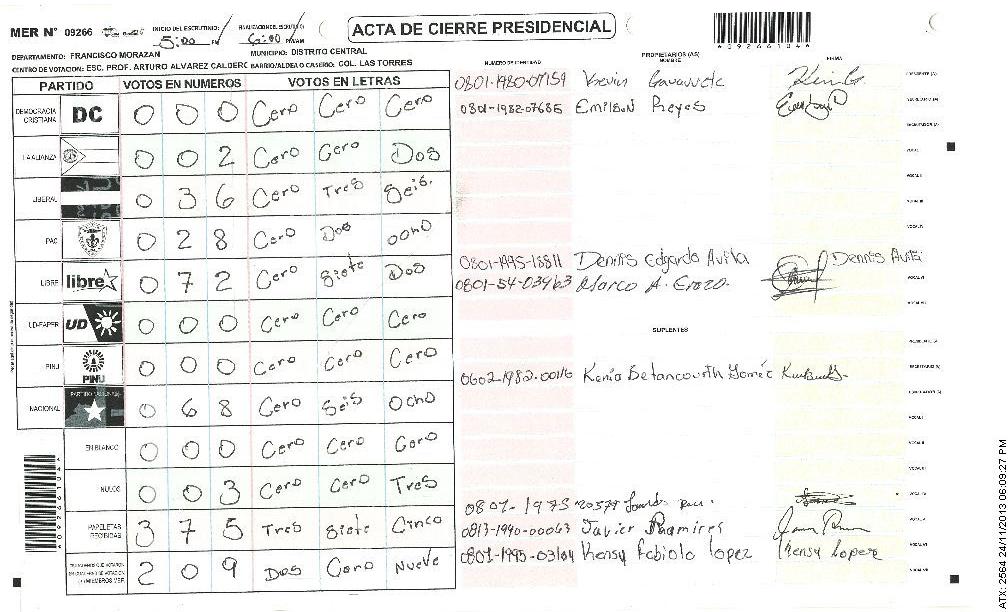 MER N° 09266 INICIO DEL ESCRUTINIO: 5:00 PM FINALIZACION DEL ESCRUTINIO 6:00 PM/AM
ACTA DE CIERRE PRESIDENCIAL
4092661044
DEPARTAMENTO: FRANCISCO MORAZAN MUNICIPIO: DISTRITO CENTRAL
CENTRO DE VOTACION: ESC. PROF. ARTURO ALVAREZ CALDERO BARRIO/ALDEA O CASERIO: COL. LAS TORRES
PARTIDO VOTOS EN NUMEROS VOTOS EN LETRAS
DEMOCRACIA CRISTIANA DC 0 0 0 Cero Cero Cero
LA ALIANZA 0 0 2 Cero Cero Dos
LIBERAL 0 3 6 Cero Tres Seis.
PAC 0 2 8 Cero Dos ocho
LIBRE libre 0 7 2 Cero Siete Dos
UD-FAPER UD 0 0 0 Cero Cero Cero
PINU PINU 0 0 0 Cero Cero Cero
NACIONAL PARTIDO NACIONAL 0 6 8 Cero Seis Ocho
EN BLANCO 0 0 0 Cero Cero Cero
NULOS 0 0 3 Cero Cero Tres
PAPELETAS RECIBIDAS 3 7 5 Tres Siete Cinco
2 0 9 Dos Cero Nueve
NUMERO DE IDENTIDAD PROPIETARIOS (AS) NOMBRE FIRMA
0801-1980-07159 Kevin
0801-1982-07685 Emilson Reyes
0801-1995-18811 Dennis Edgardo Avila Dennis Avila
Marco A. Erazo.
SUPLENTES
0602-1982-00116 Kenia Betancourth Gomez
0801-1973-20379
0813-1990-00063 Javier Ramires
0801-1995-03104 Kensy Fabiola Lopez Kensy Lopez
ATX: 2564 24/11/2013 06:09:27 PM